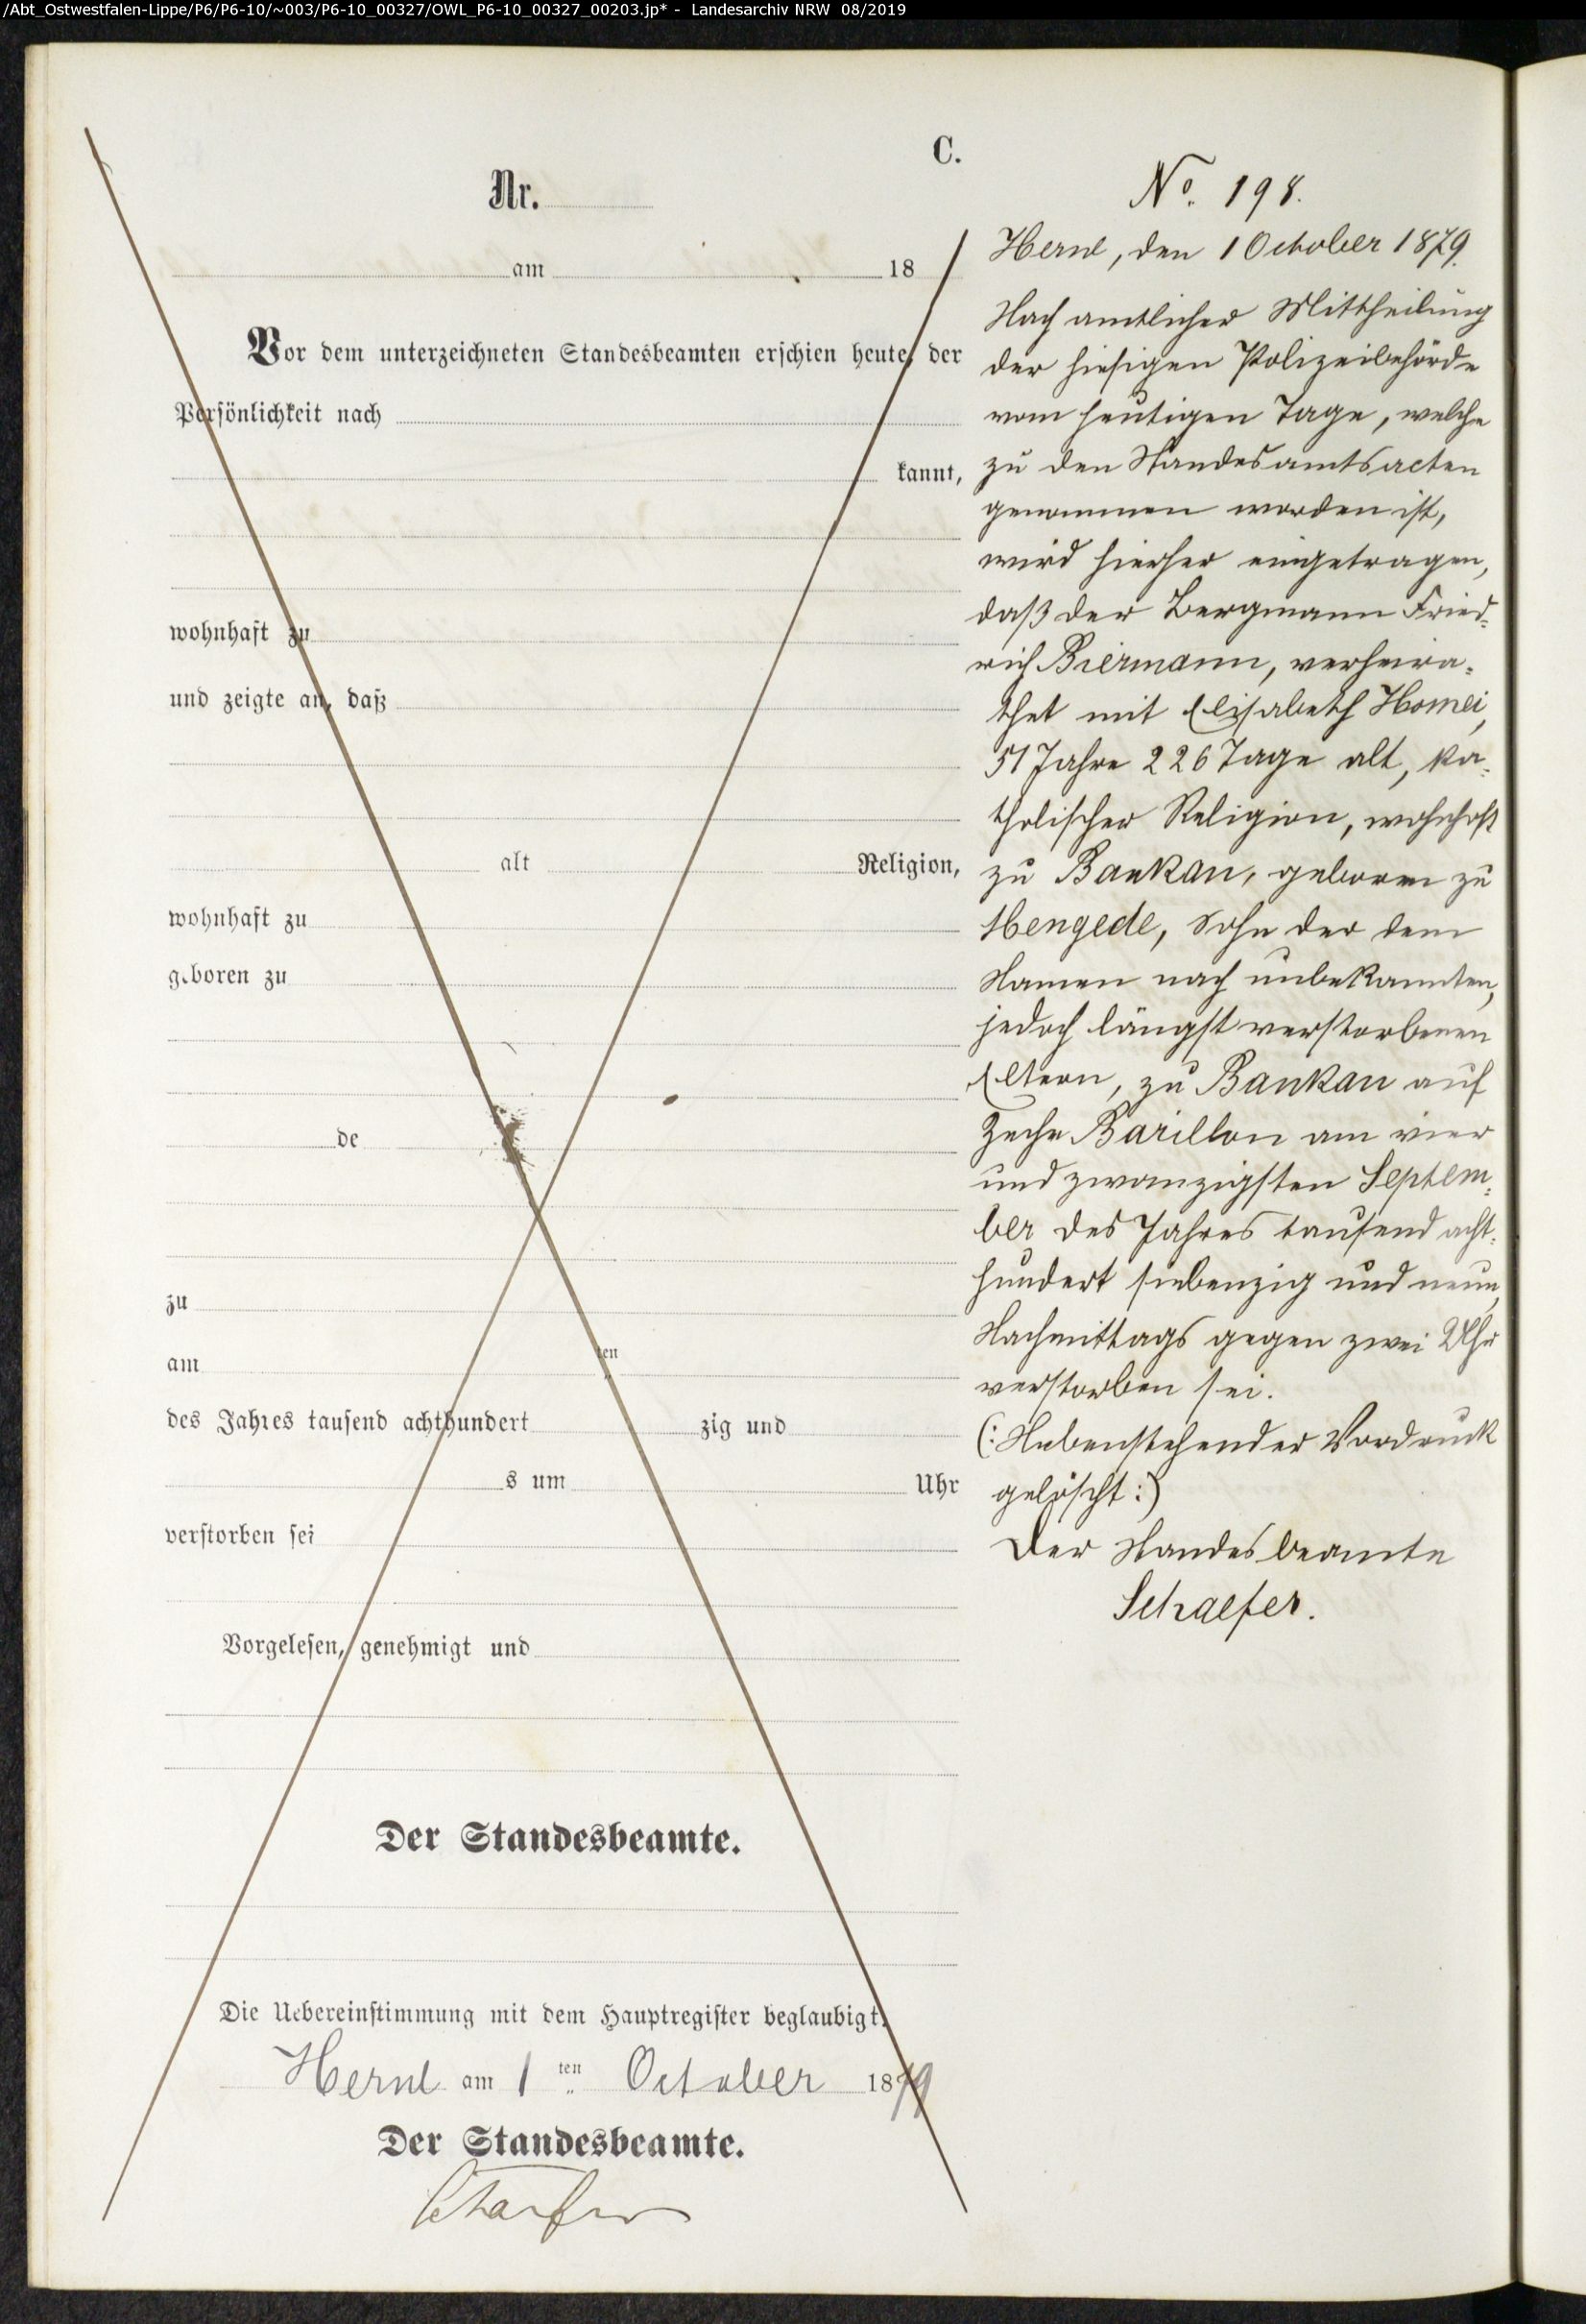 /Abt_Ostwestfalen-Lippe/P6/P6-10/~003/P6-10_00327/OWL_P6-10_00327_00203.jp* - Landesarchiv NRW 08/2019
C.
Nr.
am 18
Vor dem unterzeichneten Standesbeamten erschien heute, der
Persönlichkeit nach
kannt,
wohnhaft zu
und zeigte an, daß
alt Religion,
wohnhaft zu
geboren zu
de
zu
am ten
des Jahres tausend achthundert zig und
s um Uhr
verstorben sei
Vorgelesen, genehmigt und
Der Standesbeamte.
Die Uebereinstimmung mit dem Hauptregister beglaubigt.
Herne am 1 ten October 1879
Der Standesbeamte.
Schaefer
No. 198.
Herne, den 1 October 1879.
Nach amtlicher Mittheilung
der hiesigen Polizeibehörde
vom heutigen Tage, welche
zu den Standesamtsacten
genommen worden ist,
wird hierher eingetragen,
daß der Bergmann Fried-
rich Biermann, verheira-
thet mit Elisabeth Homei,
51 Jahre 226 Tage alt, ka-
tholischer Religion, wohnhaft
zu Baukau, geboren zu
Mengede, Sohn der dem
Namen nach unbekannten,
jedoch längst verstorbenen
Eltern, zu Baukau auf
Zeche Barillon am vier
und zwanzigsten Septem-
ber des Jahres tausend acht-
hundert siebenzig und neun,
Nachmittags gegen zwei Uhr
verstorben sei.
(: Nebenstehender Vordruck
gelöscht :)
Der Standesbeamte
Schaefer.